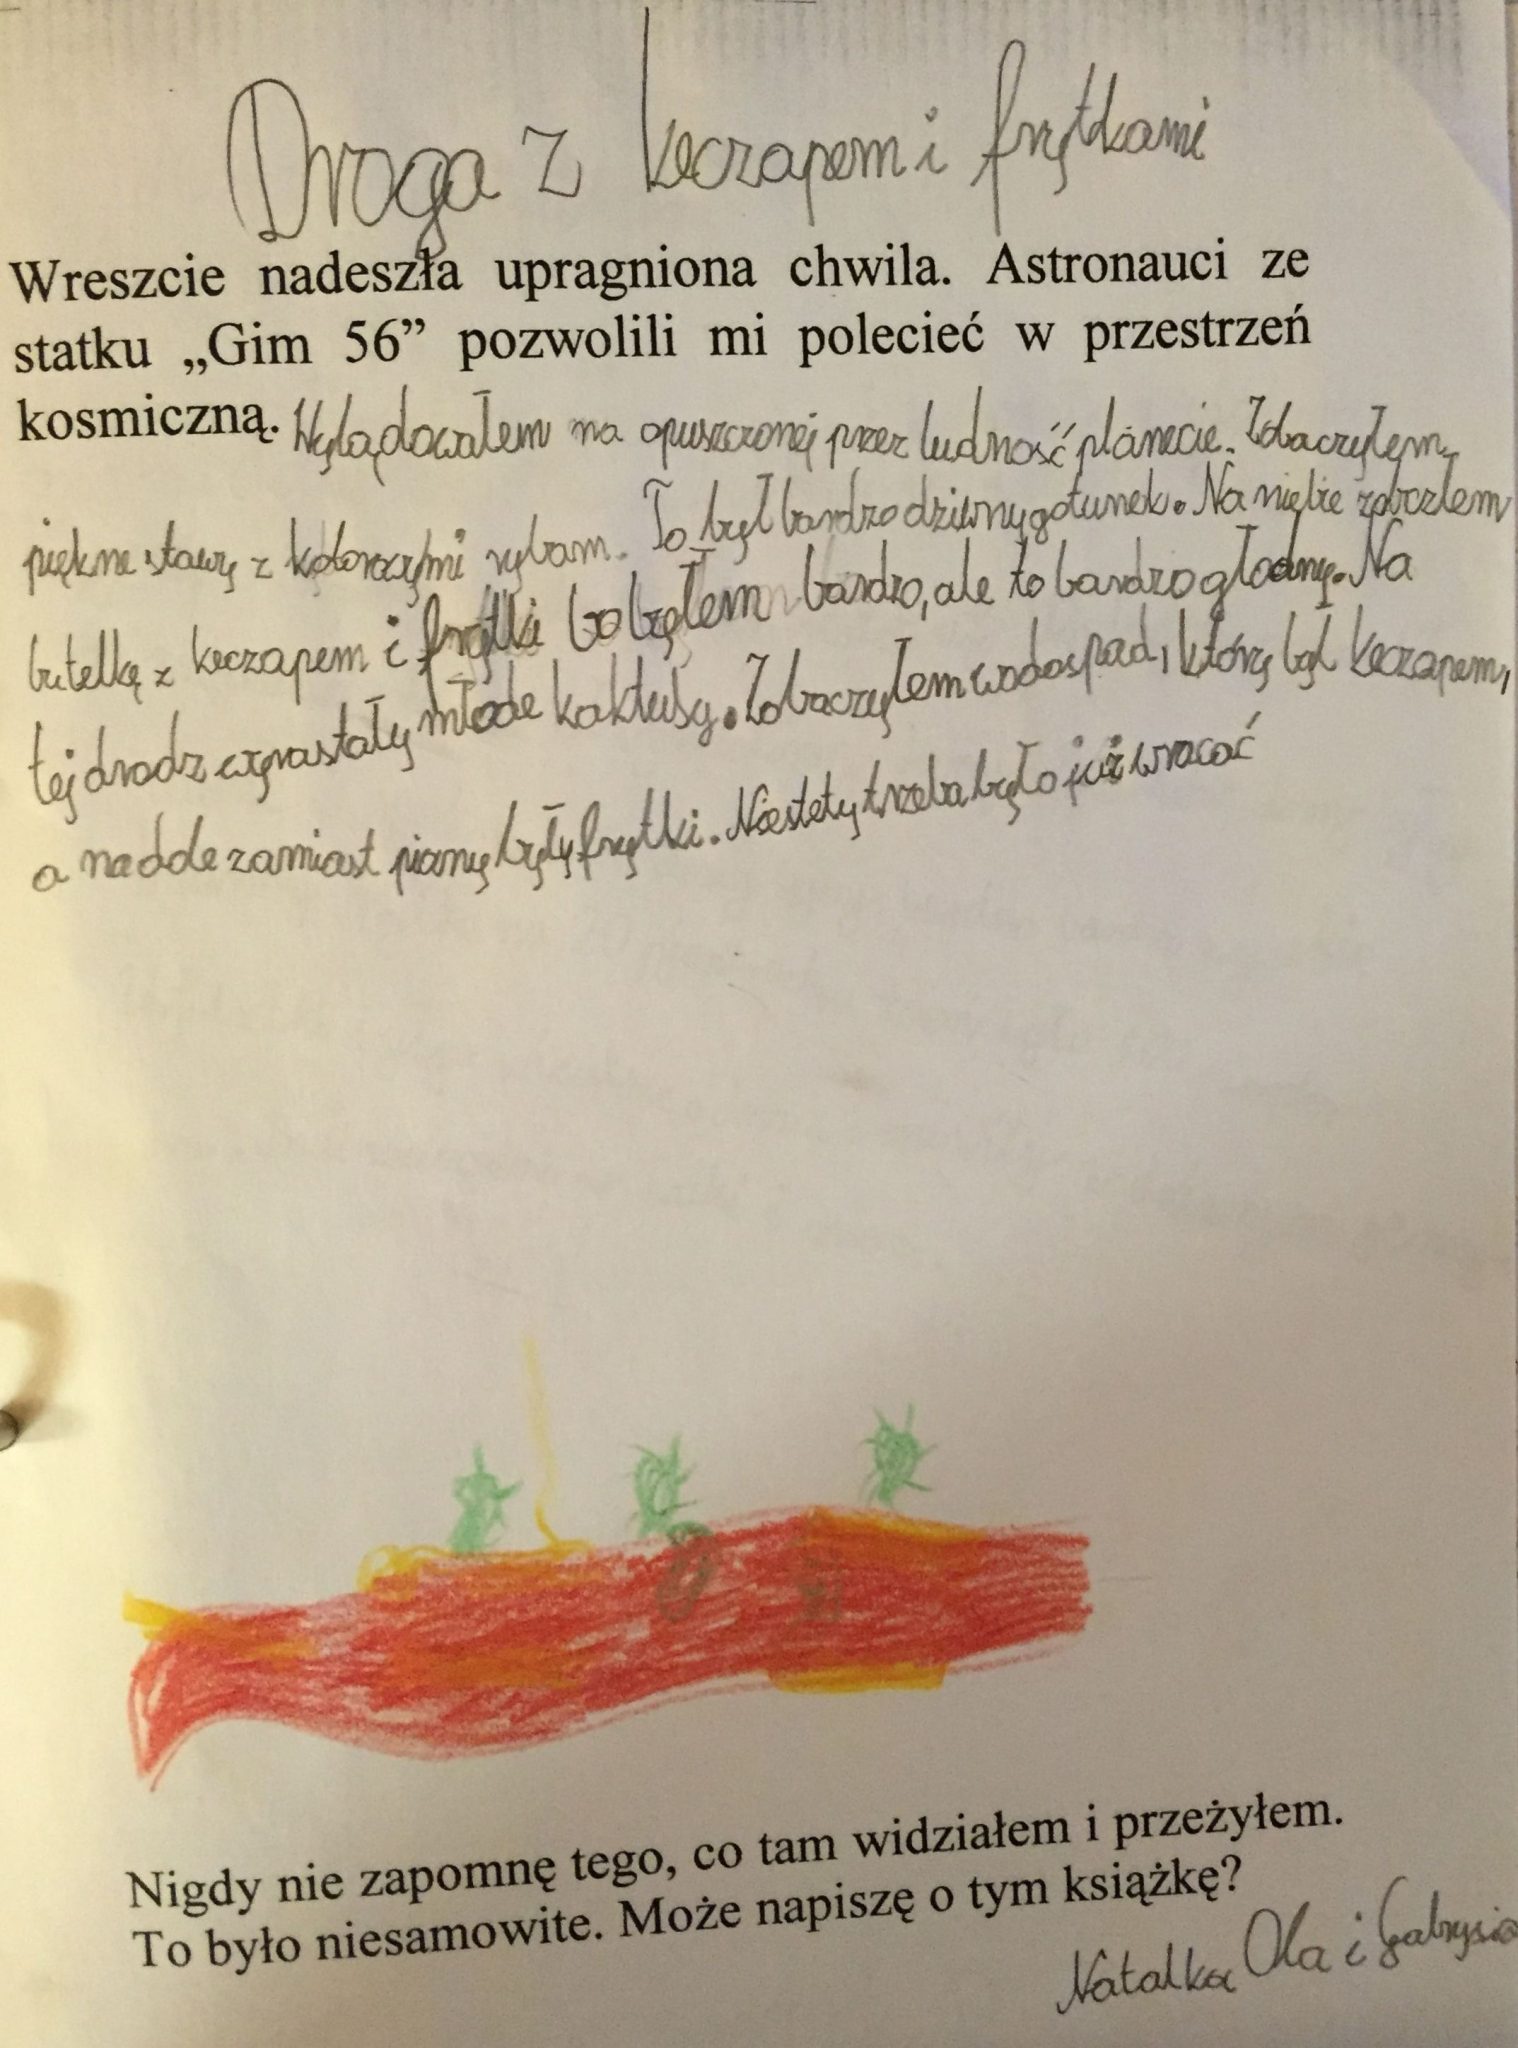 Droga z keczapem i frytkami
Wreszcie nadeszła upragniona chwila. Astronauci ze
statku „Gim 56” pozwolili mi polecieć w przestrzeń
kosmiczną. Wylądowałem na opuszczonej przez ludność planecie. Zobaczyłem
piękne stawy z kolorowymi rybam. To był bardzo dziwny gatunek. Na niebie zobaczłem
butelkę z keczapem i frytki bo byłem bardzo, ale to bardzo głodny. Na
tej drodz wyrastały młode kaktusy. Zobaczyłem wodospad, który był keczapem,
a na dole zamiast piany były frytki. Niestety trzeba było już wracać
Nigdy nie zapomnę tego, co tam widziałem i przeżyłem.
To było niesamowite. Może napiszę o tym książkę?
Natalka Ola i Gabrysia